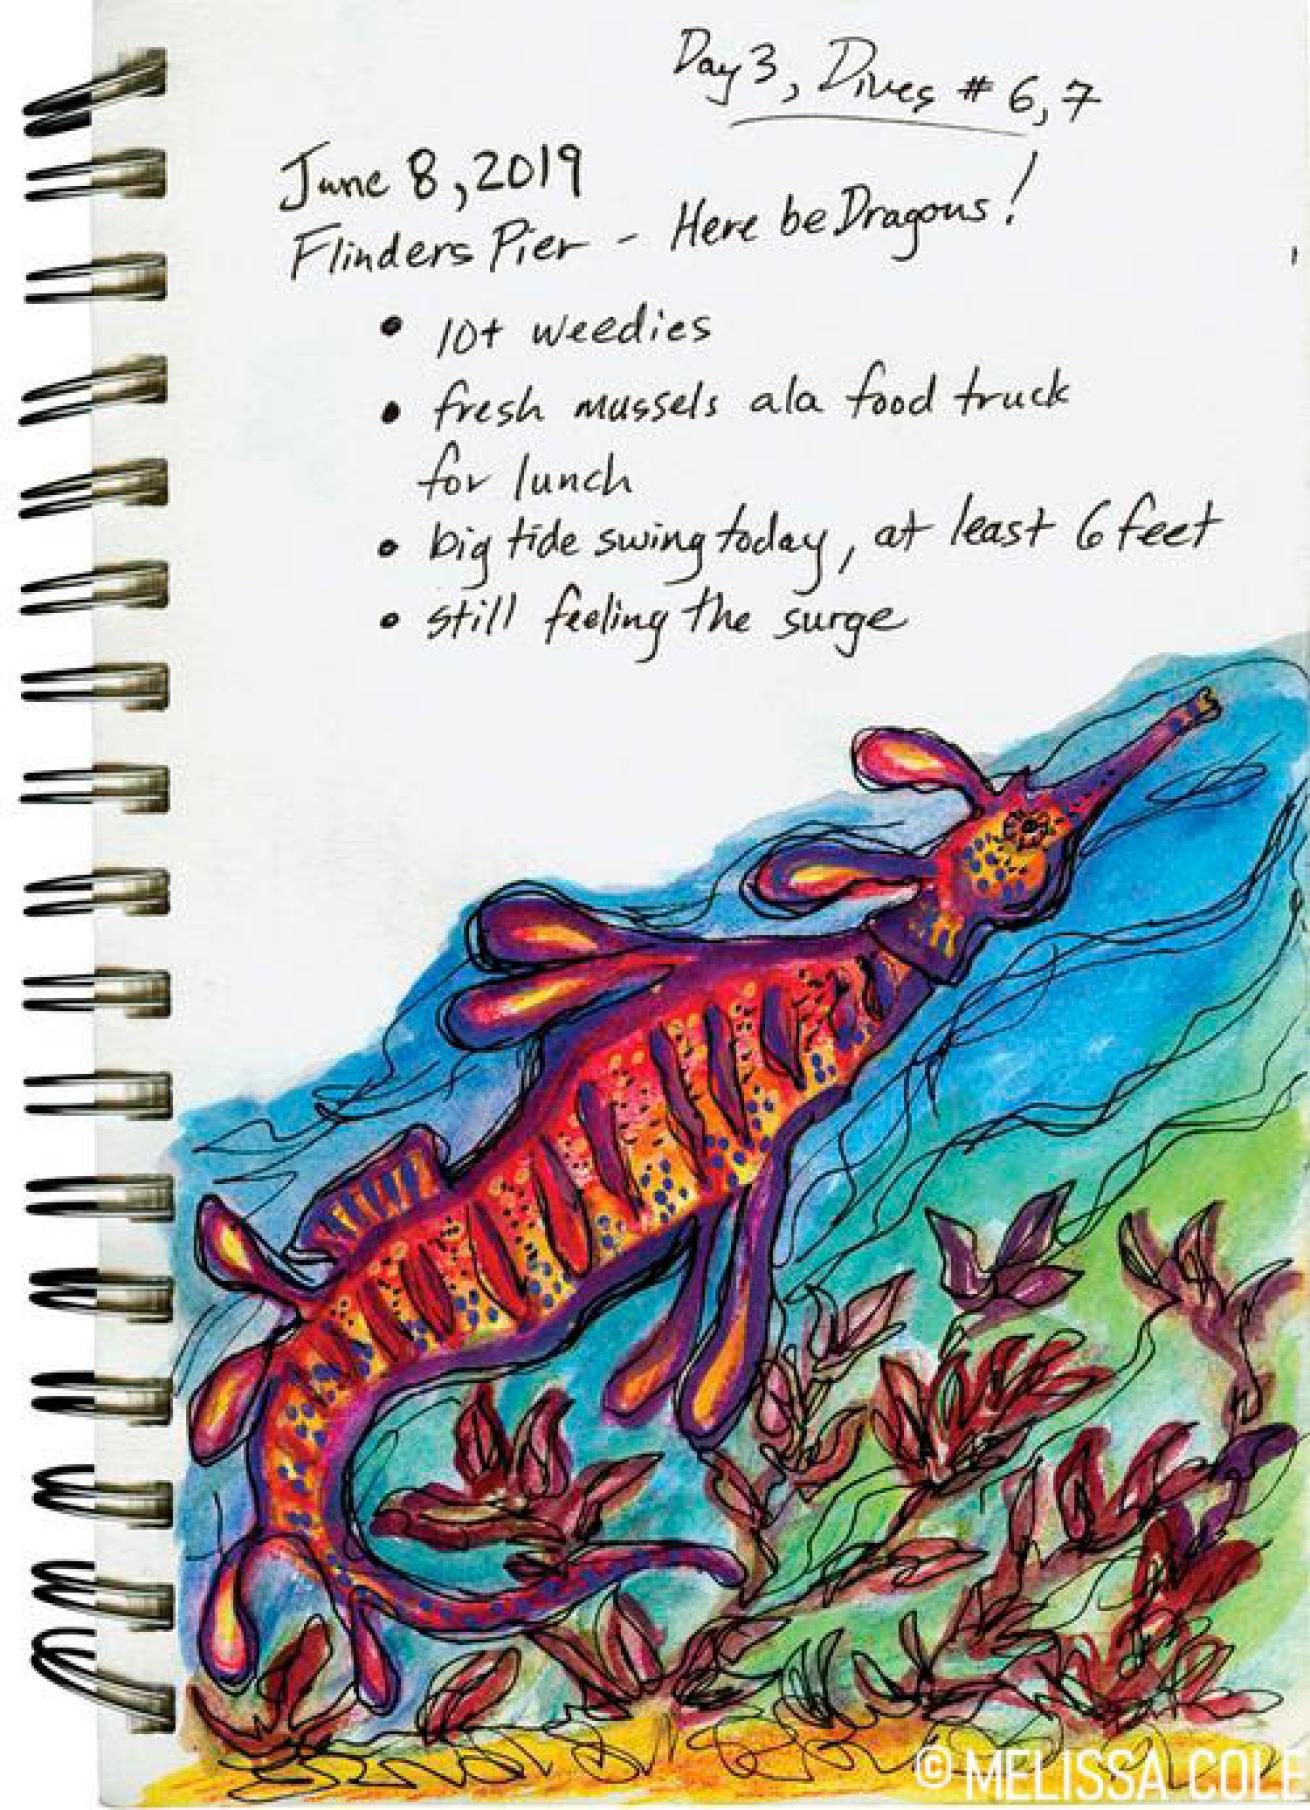 Day 3, Dives # 6, 7
June 8, 2019
Flinders Pier - Here be Dragons!
• 10+ weedies
• fresh mussels ala food truck
for lunch
• big tide swing today, at least 6 feet
• still feeling the surge
© MELISSA COLE